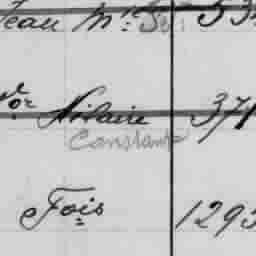 Jean Mie 53
or Hilaire 371
Constant
Fois 1293